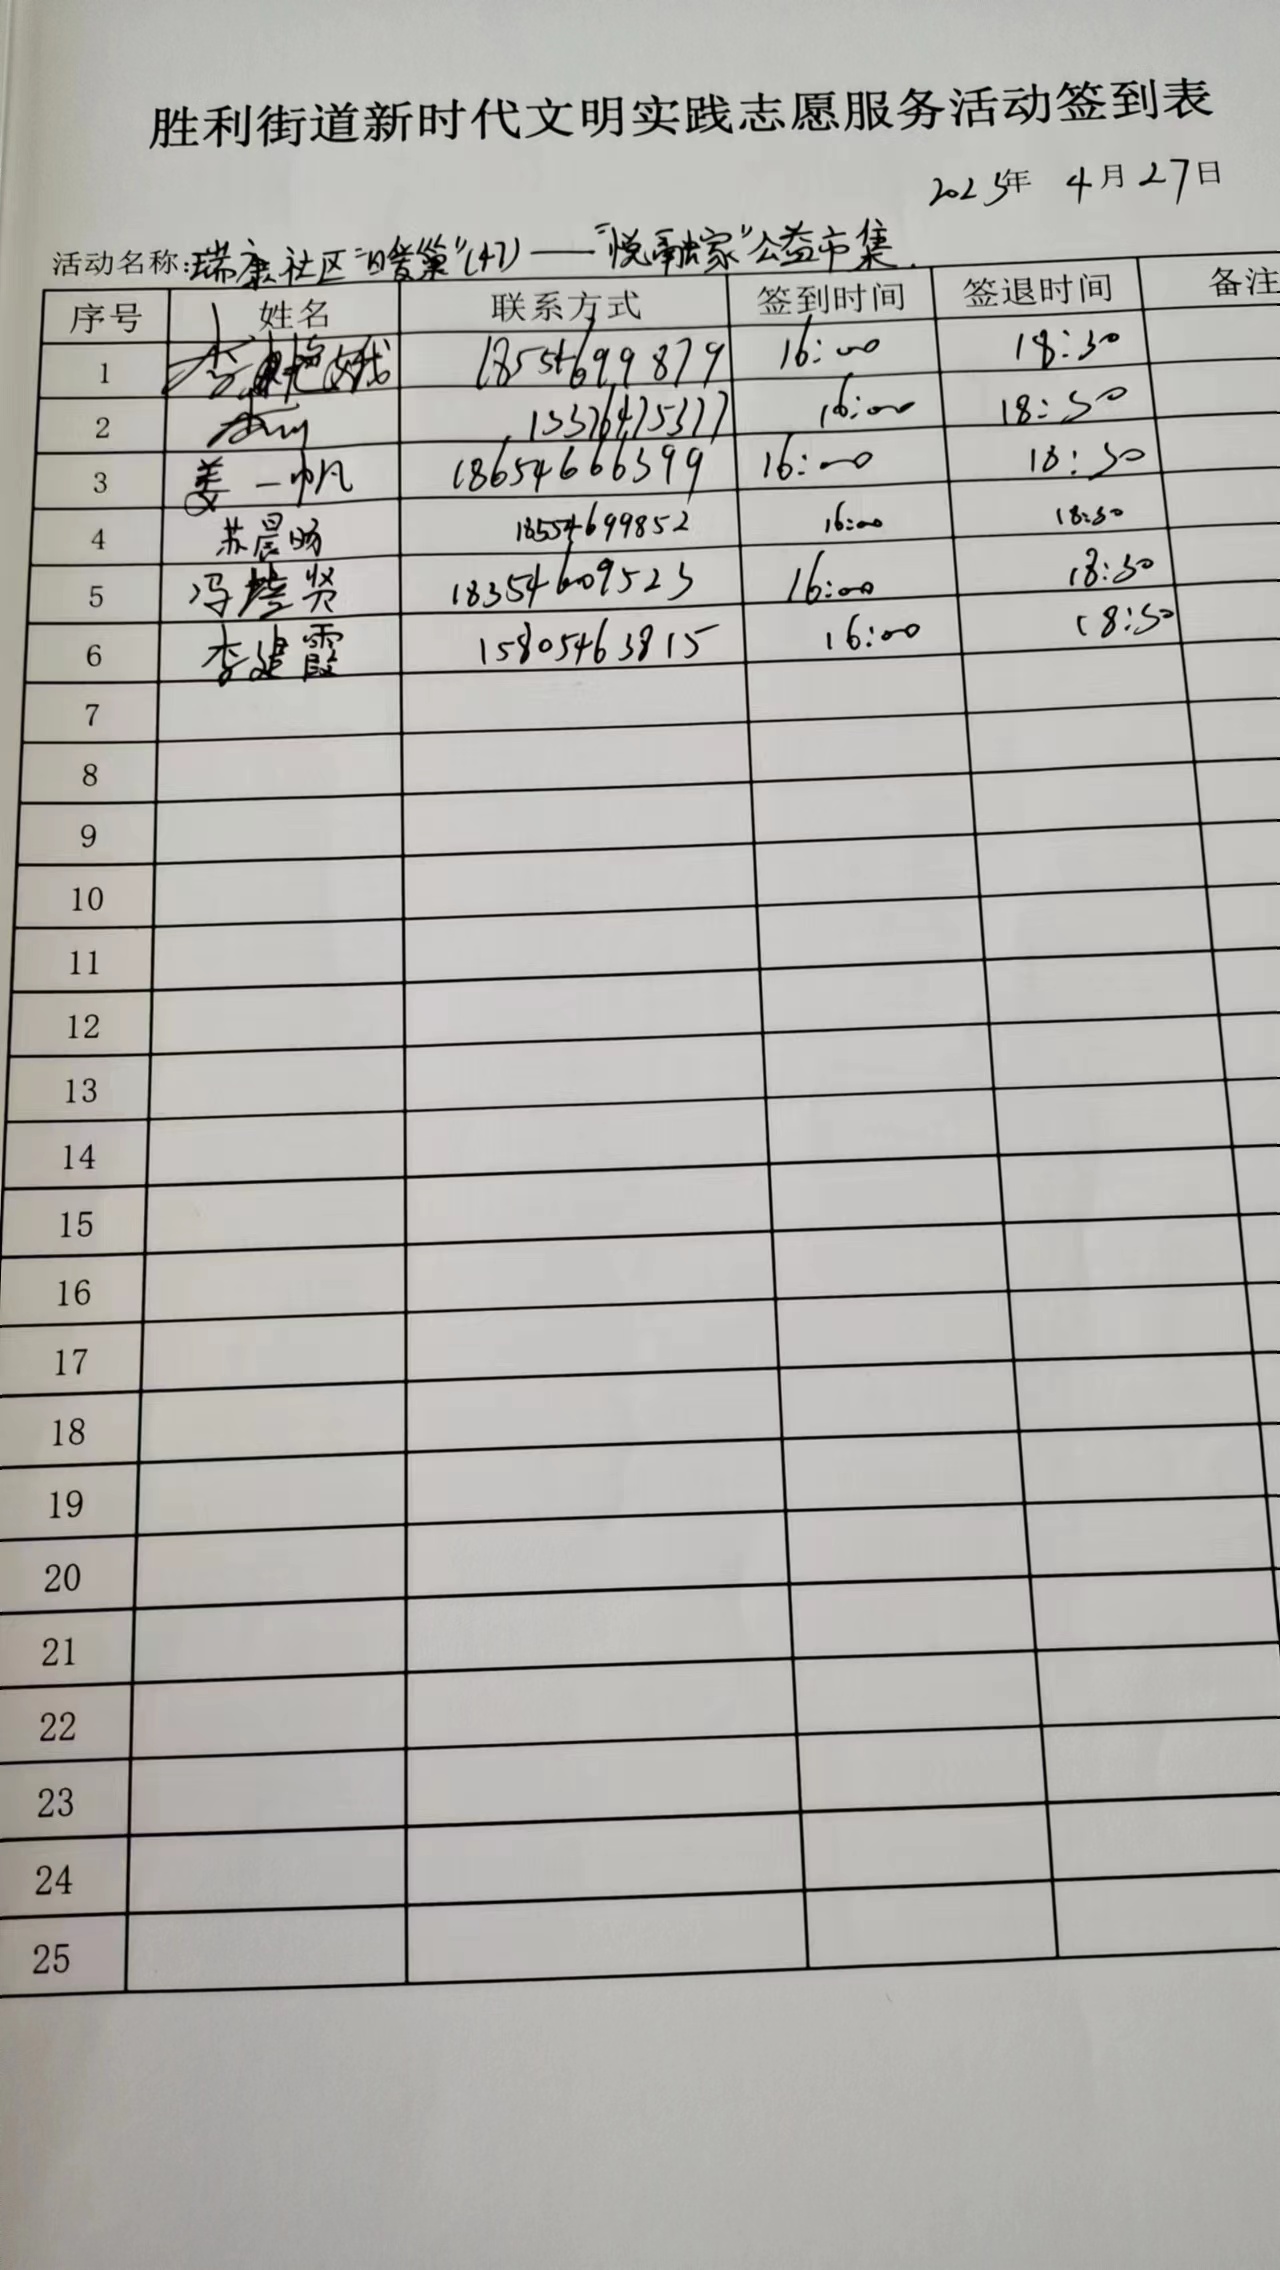 胜利街道新时代文明实践志愿服务活动签到表
2023年 4月27日
活动名称:瑞康社区"暖巢"(47)——"悦融家"公益市集
序号 姓名 联系方式 签到时间 签退时间 备注
1 18554699879 16:00 18:30
2 13376475377 16:00 18:30
3 姜一帆 18654666399 16:00 18:30
4 苏晨旸 18554699852 16:00 18:30
5 冯贤 18354609523 16:00 18:30
6 李建霞 15805463815 16:00 18:30
7
8
9
10
11
12
13
14
15
16
17
18
19
20
21
22
23
24
25